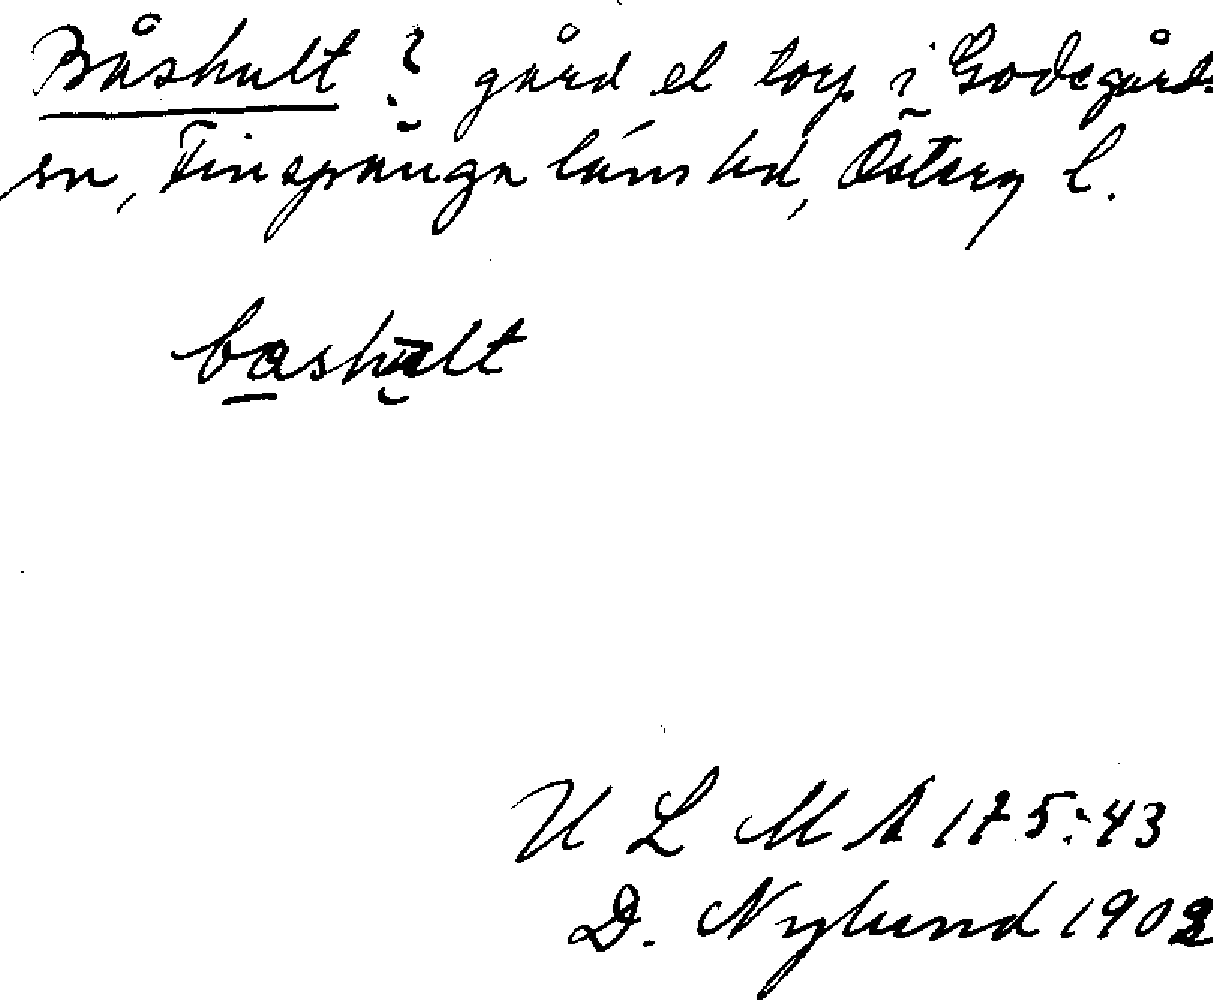 Båshult ? gård el torp i Godegårds
sn, Finspånga läns hd, Österg l.
bashult
U L M A 175:43
D. Nylund 1902